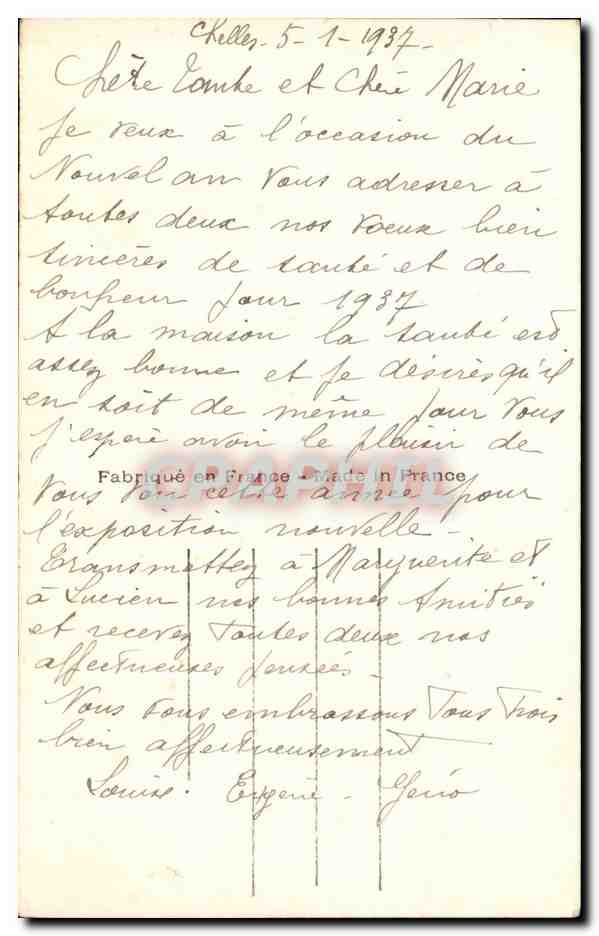 Chelles - 5 - 1 - 1937 -
Chère Tante et Chère Marie
Je veux à l'occasion du
Nouvel an vous adresser à
toutes deux nos voeux bien
sincères de santé et de
bonheur pour 1937
A la maison la santé est
assez bonne et je désires qu'il
en soit de même pour vous
j'espère avoir le plaisir de
Fabriqué en France - Made in France
vous voir cette année pour
l'exposition nouvelle -
Transmettez à Marguerite et
à Lucien nos bonnes Amitiés
et recevez Toutes deux nos
affectueuses pensées -
Nous vous embrassons Tous Trois
bien affectueusement
Louise - Eugène -